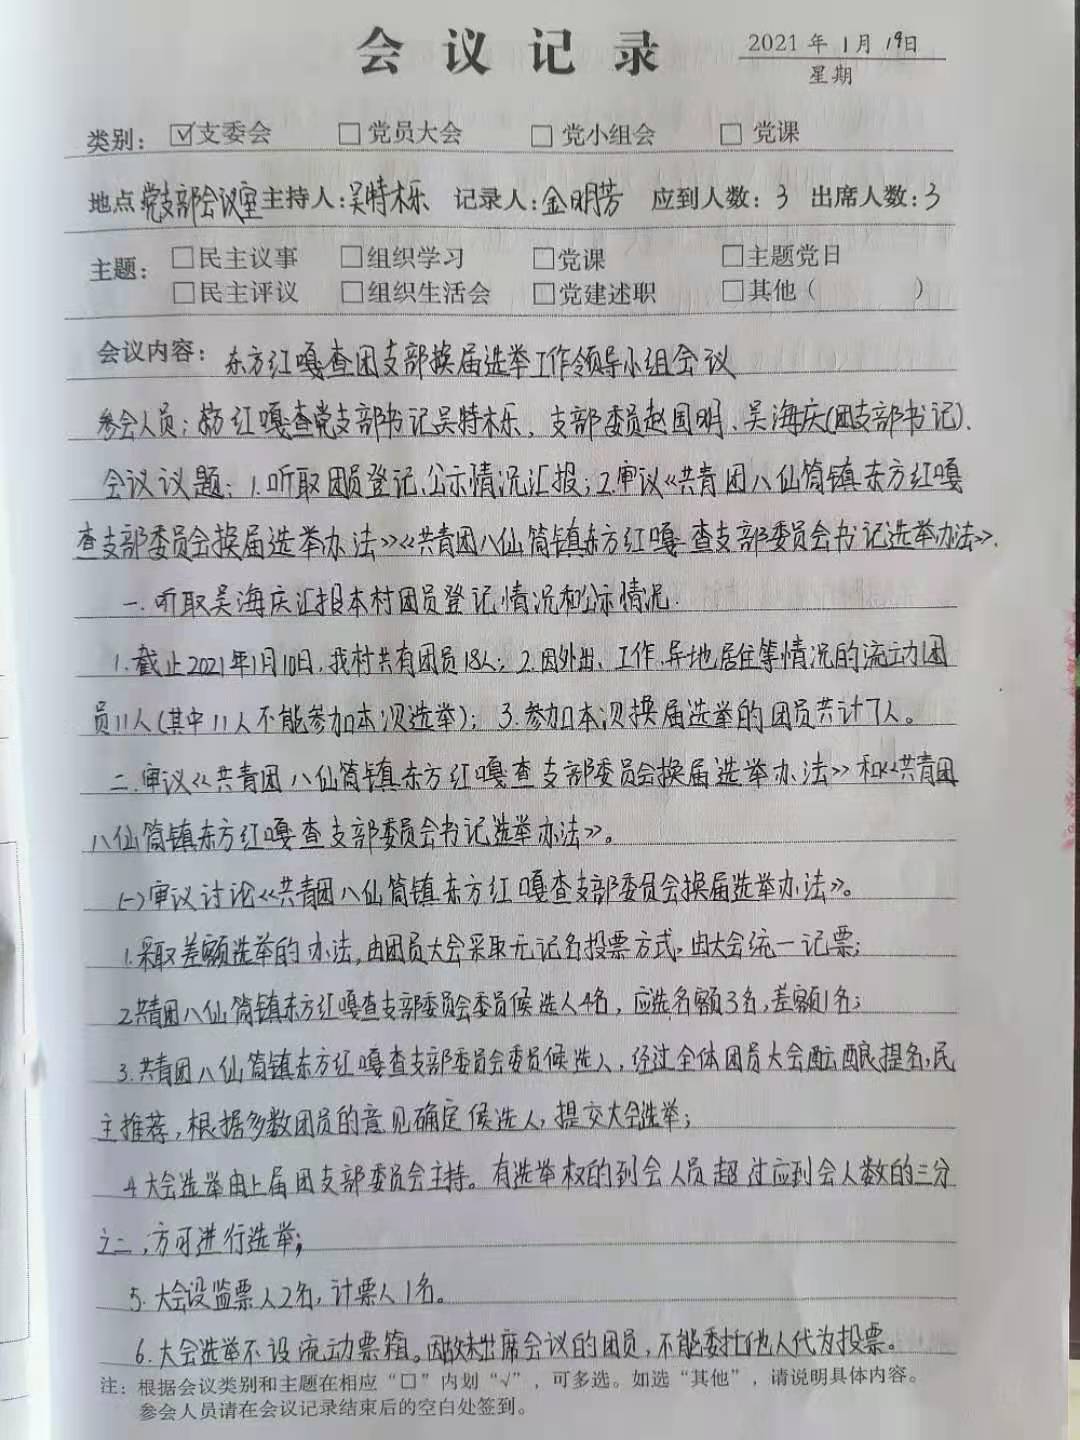 会议记录
2021年1月19日
星期
类别：☑支委会 □党员大会 □党小组会 □党课
地点党支部会议室主持人：吴特木乐 记录人：金明芳 应到人数：3 出席人数：3
主题：□民主议事 □组织学习 □党课 □主题党日
□民主评议 □组织生活会 □党建述职 □其他（ ）
会议内容：东方红嘎查团支部换届选举工作领导小组会议
参会人员：东方红嘎查党支部书记吴特木乐、支部委员赵国明、吴海庆(团支部书记).
会议议题：1.听取团员登记、公示情况汇报；2.审议《共青团八仙筒镇东方红嘎
查支部委员会换届选举办法》《共青团八仙筒镇东方红嘎查支部委员会书记选举办法》.
一.听取吴海庆汇报本村团员登记情况和公示情况.
1.截止2021年1月10日，我村共有团员18人；2.因外出、工作、异地居住等情况的流动团
员11人(其中11人不能参加本次选举)；3.参加本次换届选举的团员共计7人。
二.审议《共青团八仙筒镇东方红嘎查支部委员会换届选举办法》和《共青团
八仙筒镇东方红嘎查支部委员会书记选举办法》。
(一)审议讨论《共青团八仙筒镇东方红嘎查支部委员会换届选举办法》。
1.采取差额选举的办法，由团员大会采取无记名投票方式.由大会统一记票；
2.共青团八仙筒镇东方红嘎查支部委员会委员候选人4名，应选名额3名，差额1名；
3.共青团八仙筒镇东方红嘎查支部委员会委员候选人，经过全体团员大会酝酿提名，民
主推荐，根据多数团员的意见确定候选人，提交大会选举；
4.大会选举由上届团支部委员会主持。有选举权的到会人员超过应到会人数的三分
之二，方可进行选举；
5.大会设监票人2名，计票人1名。
6.大会选举不设流动票箱。因故未出席会议的团员，不能委托他人代为投票。
注：根据会议类别和主题在相应“□”内划“√”，可多选。如选“其他”，请说明具体内容。
参会人员请在会议记录结束后的空白处签到。